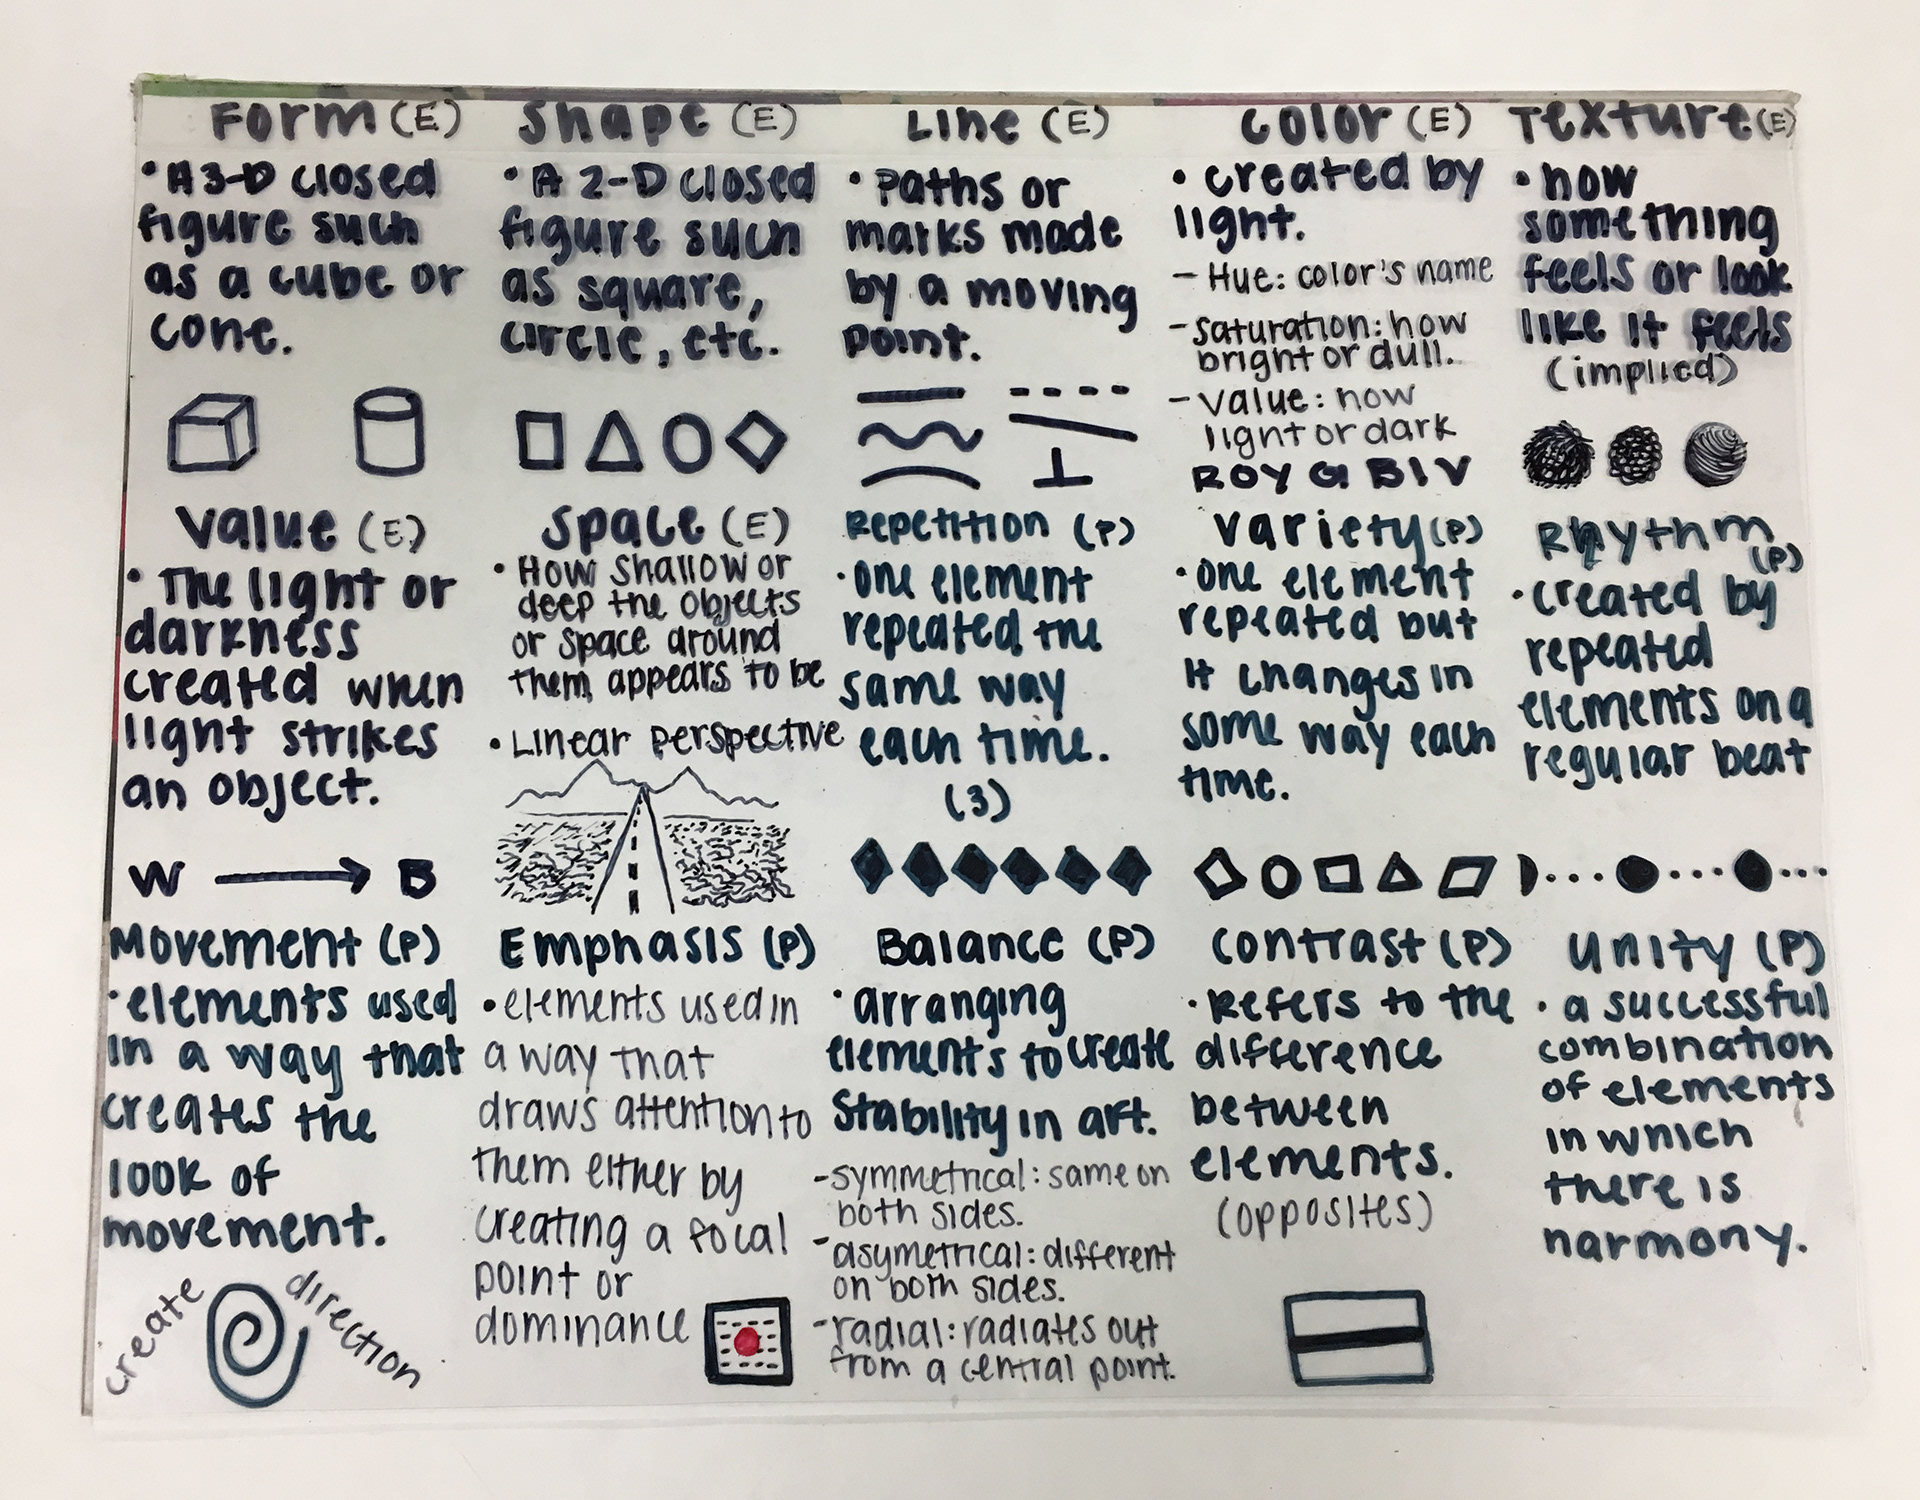 Form (E)
• A 3-D closed
figure such
as a cube or
cone.
Shape (E)
• A 2-D closed
figure such
as square,
circle, etc.
Line (E)
• Paths or
marks made
by a moving
point.
Color (E)
• created by
light.
- Hue: color's name
- saturation: how
bright or dull.
- value: how
light or dark
ROY G BIV
Texture (E)
• how
something
feels or look
like it feels
(implied)
Value (E)
• The light or
darkness
created when
light strikes
an object.
W B
Space (E)
• How shallow or
deep the objects
or space around
them appears to be
• Linear perspective
Repetition (P)
• one element
repeated the
same way
each time.
(3)
Variety (P)
• one element
repeated but
it changes in
some way each
time.
Rhythm
(P)
• created by
repeated
elements on a
regular beat
Movement (P)
• elements used
in a way that
creates the
look of
movement.
create direction
Emphasis (P)
• elements used in
a way that
draws attention to
them either by
creating a focal
point or
dominance
Balance (P)
• arranging
elements to create
Stability in art.
- symmetrical: same on
both sides.
- asymetrical: different
on both sides.
- radial: radiates out
from a central point.
Contrast (P)
• Refers to the
difference
between
elements.
(opposites)
Unity (P)
• a successful
combination
of elements
in which
there is
harmony.